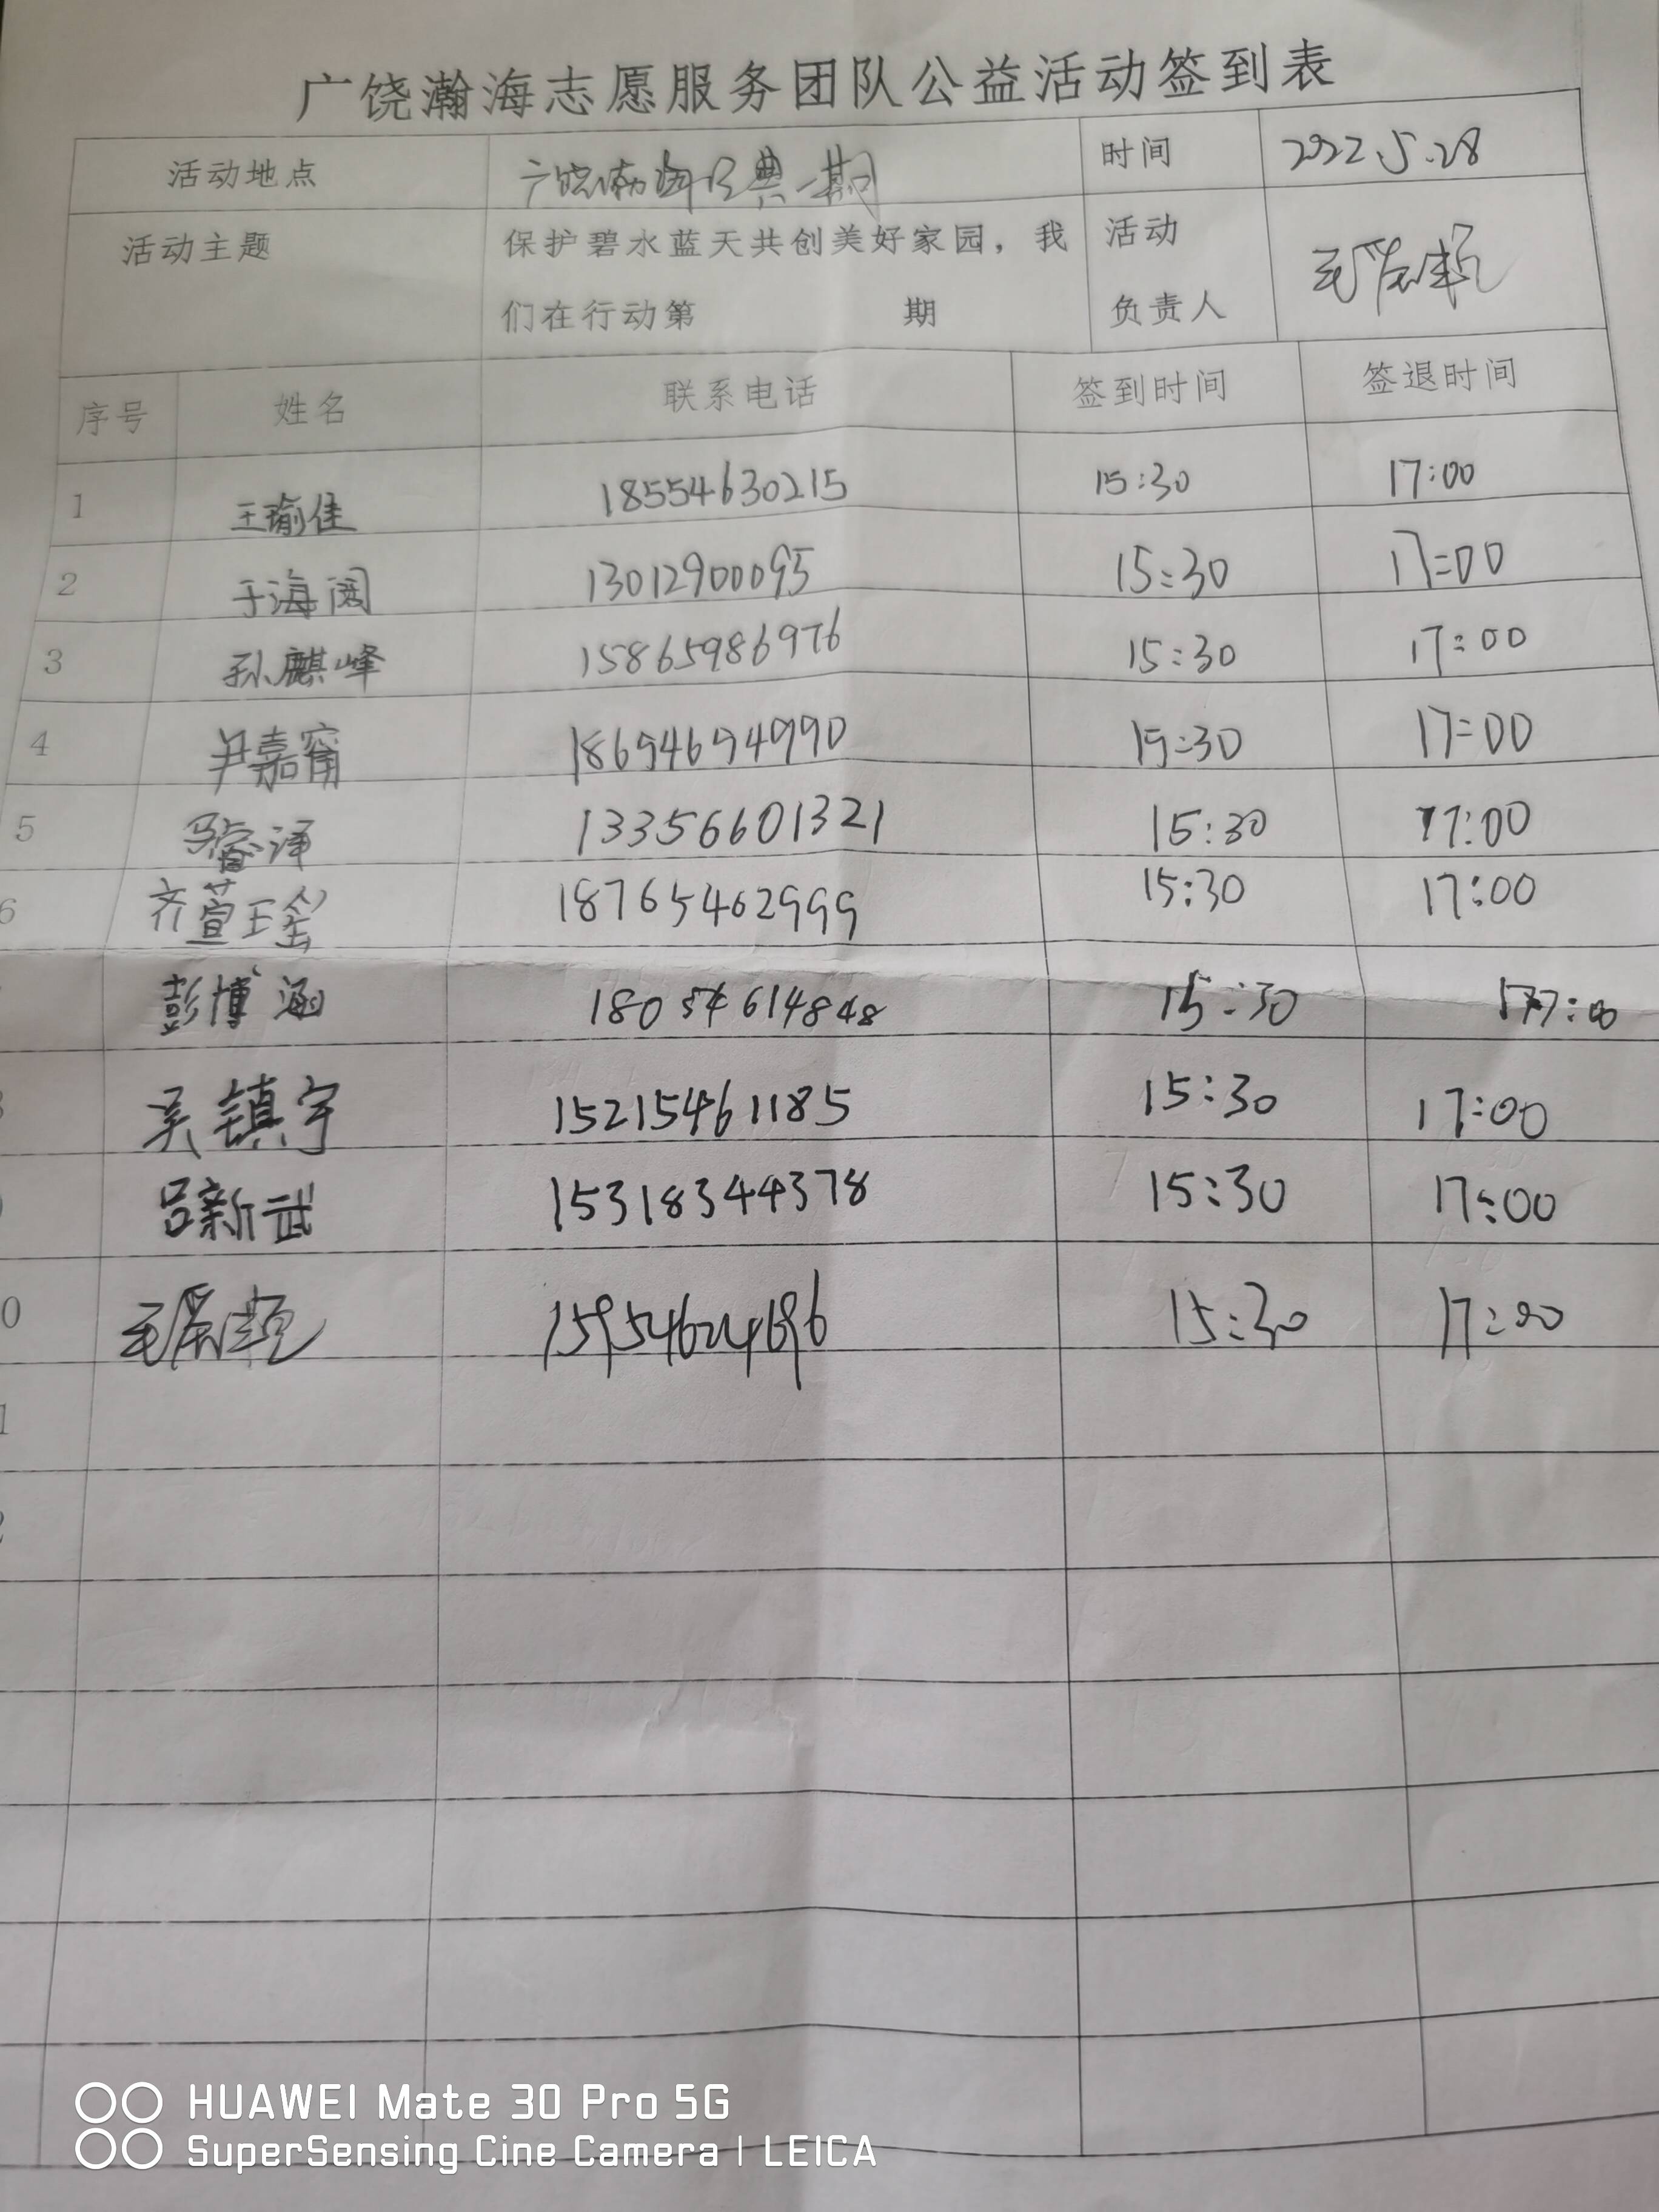 广饶瀚海志愿服务团队公益活动签到表
活动地点 广饶渤海经典一期 时间 2022.5.28
活动主题 保护碧水蓝天共创美好家园，我 活动
们在行动第 期 负责人
序号 姓名 联系电话 签到时间 签退时间
1 王瑜佳 18554630215 15:30 17:00
2 于海阔 13012900095 15:30 17:00
3 孙麒峰 15865986976 15:30 17:00
4 尹嘉甯 18694694990 15:30 17:00
5 骆睿泽 13356601321 15:30 17:00
6 齐萱瑶 18765462999 15:30 17:00
彭博涵 18054614848 15:30 17:00
吴镇宇 15215461185 15:30 17:00
吕新武 15318344378 15:30 17:00
0 15:30 17:00
1
2
HUAWEI Mate 30 Pro 5G
SuperSensing Cine Camera | LEICA